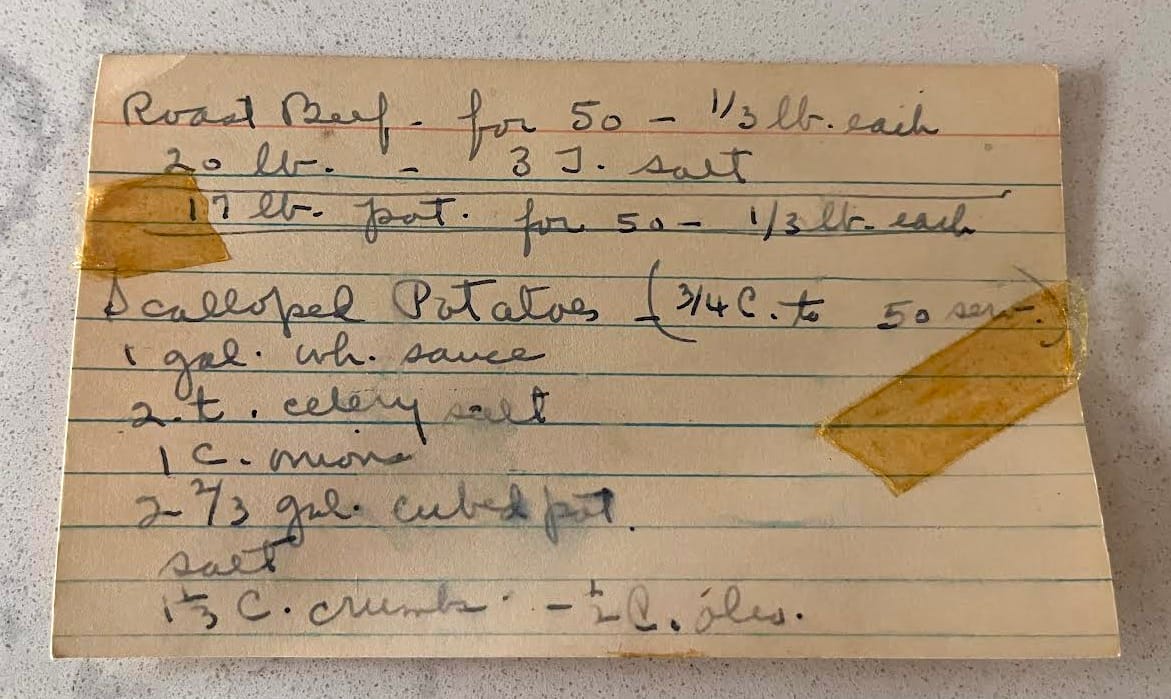 Roast Beef - for 50 - 1/3 lb. each
20 lb. - 3 T. salt
17 lb. pot. for 50 - 1/3 lb. each
Scalloped Potatoes - (3/4 C. to 50 serv.)
1 gal. wh. sauce
2 t. celery salt
1 C. onions
2 2/3 gal. cubed pot.
salt
1 1/3 C. crumbs - 1/2 C. oleo.